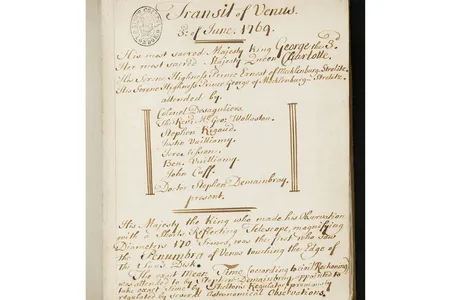 Transit of Venus.
3d. of June, 1769.
His most sacred Majesty King George the 3d.
Her most sacred Majesty Queen Charlotte.
His Serene Highness Prince Ernest of Mecklenburg Strelitz.
His Serene Highness Prince George of Mecklenburg Strelitz.
attended by.
Colonel Desaguliers.
The Revd. Mr. Geo: Wollaston.
Stephen Rigaud.
Justin Vulliamy.
Ben: Vulliamy.
John Cuff.
Doctor Stephen Demainbray.
present.
His Majesty the King who made his Observation
with a Shorts Reflecting Telescope, magnifying
Diameters 170 Times, was the first who saw
the Penumbra of Venus touching the Edge of
the Suns Disk.
The exact Mean Time (according to Civil Reckoning)
was attended to by Stephen Demainbray, appointed to
take exact Time by Shelton's Regulator, previously
regulated by several Astronomical Observations.